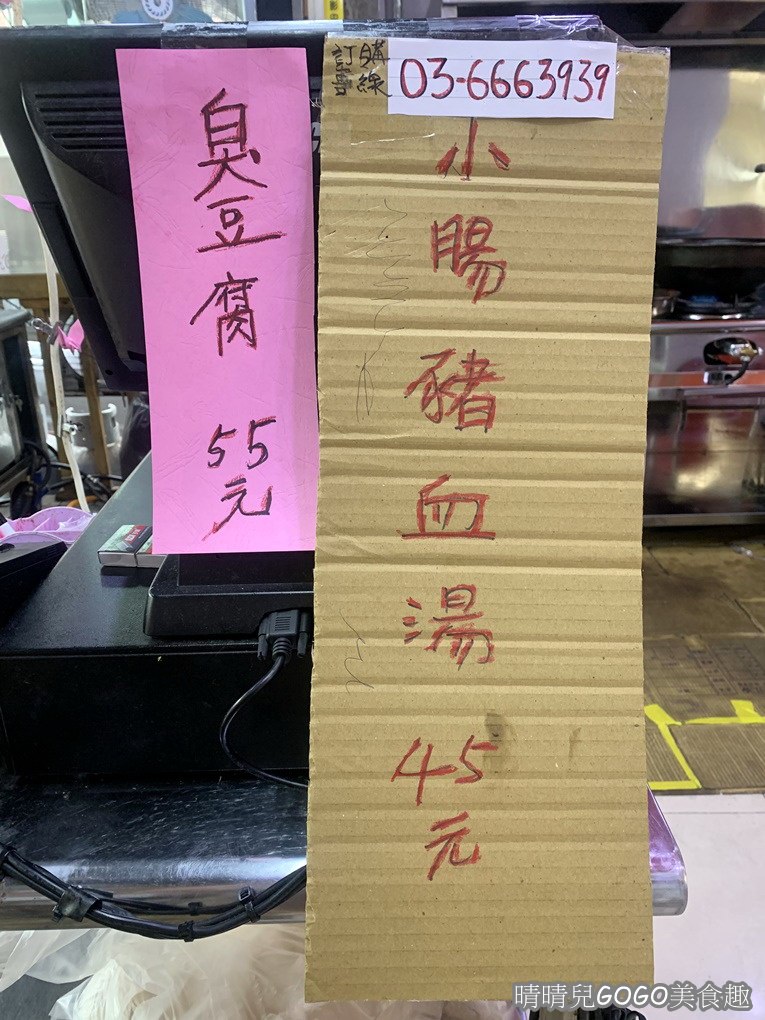 臭豆腐 55元
訂購專線 03-6663939
小腸豬血湯 45元
晴晴兒GOGO美食趣